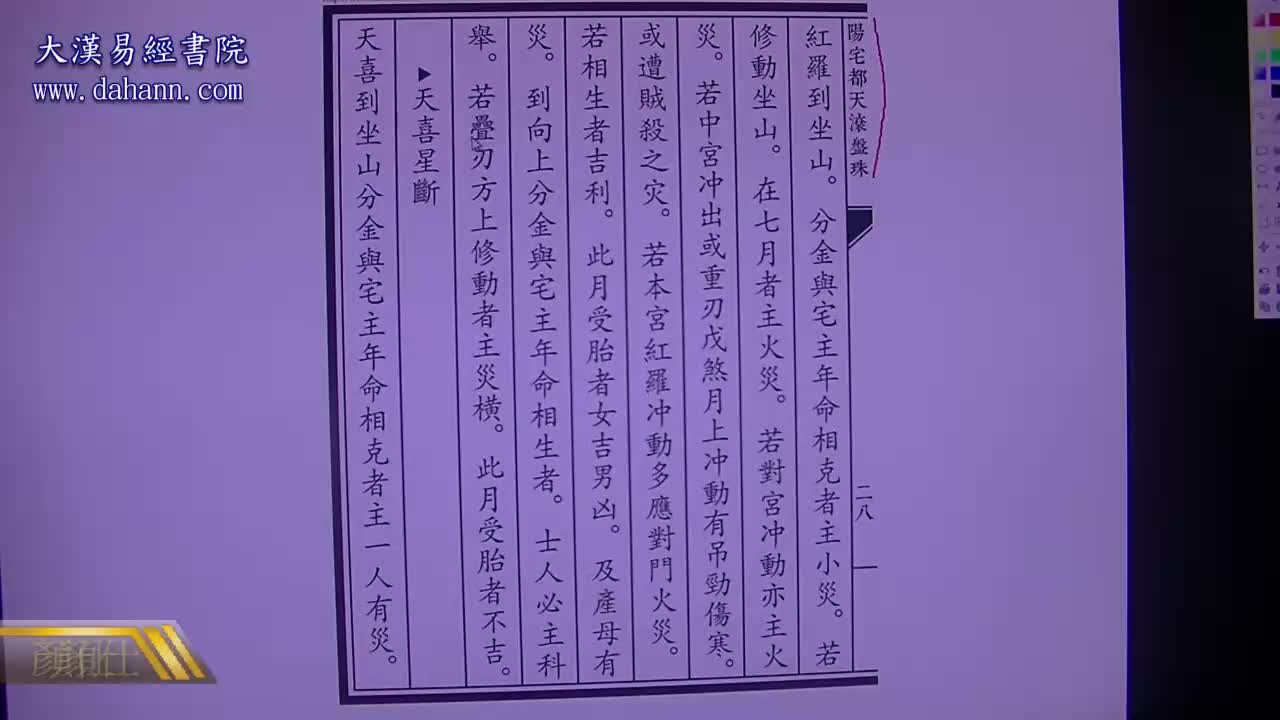 大漢易經書院
www.dahann.com
陽宅都天滾盤珠
二八
紅羅到坐山。分金與宅主年命相克者主小災。若
修動坐山。在七月者主火災。若對宮冲動亦主火
災。若中宮冲出或重刃戊煞月上冲動有吊勁傷寒、。
或遭賊殺之灾。若本宮紅羅冲動多應對門火災。
若相生者吉利。此月受胎者女吉男凶。及產母有
災。到向上分金與宅主年命相生者。士人必主科
舉。若疊刃方上修動者主災橫。此月受胎者不吉。
▶天喜星斷
天喜到坐山分金與宅主年命相克者主一人有災。